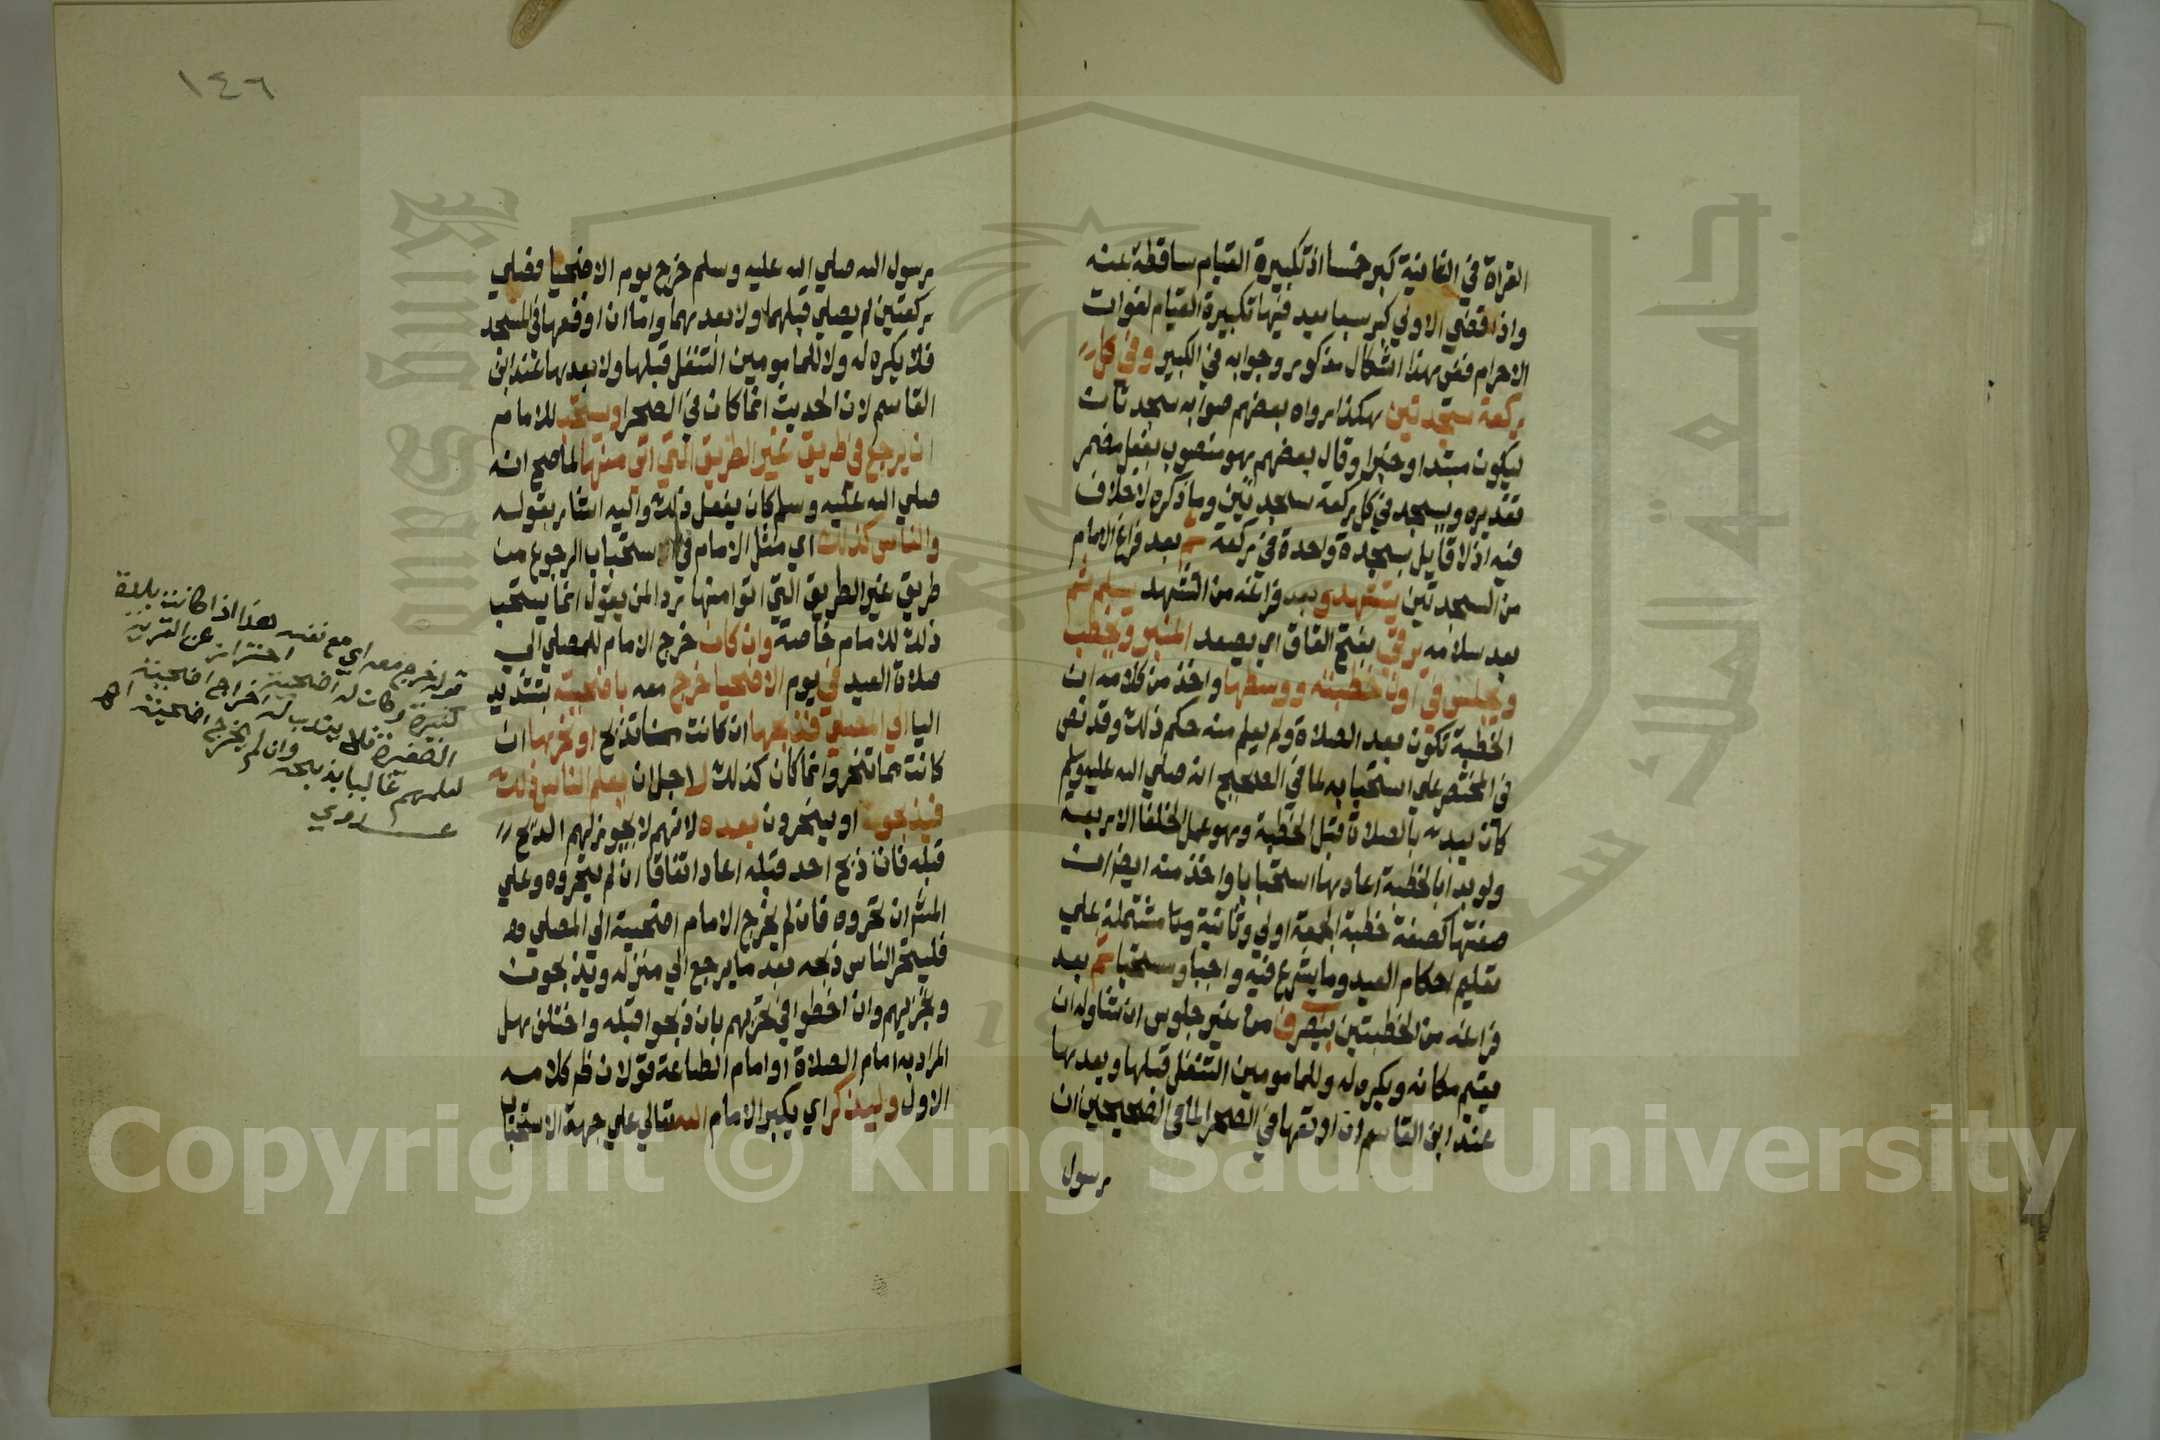 القراة في الثانية كبر خمسا اذ تكبيرة القيام ساقطة عنه
واذا قضي الاولي كبر سبعا يعد فيها تكبيرة القيام لفوات
الاحرام ففي هذا اشكال مذكور وجوابه في الكبير وفي كل
ركعة سجدتين هكذا رواه بعضهم صوابه سجدتان
ليكون مبتدا وخبرا وقال بعضهم هو منصوب بفعل مضمر
تقديره ويسجد في كل ركعة سجدتين وما ذكره لاخلاف
فيه اذ لا قايل بسجدة واحدة في ركعة ثم بعد فراغ الامام
من السجدتين يتشهد وبعد فراغه من التشهد يسلم ثم
بعد سلامه يرقي بفتح القاف اي يصعد المنبر ويخطب
ويجلس في اول خطبته ووسطها واخذ من كلامه ان
الخطبة تكون بعد الصلاة ولم يعلم منه حكم ذلك وقد نص
في المختصر علي استحبابه لما في الصحيح انه صلي الله عليه وسلم
كان يبدء بالصلاة قبل الخطبة وهو عمل الخلفا الاربعة
ولو بدا بالخطبة اعادها استحبابا واخذ منه ايضا ان
صفتها كصفة خطبة الجمعة اولي وثانية وتا مشتملة علي
تعليم احكام العيد وما يشرع فيه واجبا ومستحبا ثم بعد
فراغه من الخطبتين ينصرف من غير جلوس ان شا وله ان
يقيم مكانه ويكره له وللمامومين التنفل قبلها وبعدها
عند ابن القاسم ان اوقعها في الصحرا لما في الصحيحين ان
رسول
١٤٦
رسول الله صلي الله عليه وسلم خرج يوم الاضحيا فصلي
ركعتين لم يصلي قبلهما ولا بعدهما واما ان اوقعها في المسجد
فلا يكره له ولا للمامومين التنفل قبلها ولا بعدها عند ابن
القاسم لان الحديث انما كان في الصحرا ويستحب للامام
ان يرجع في طريق غير الطريق التي اتي منها لما صح انه
صلي الله عليه وسلم كان يفعل ذلك واليه اشار بقوله
والناس كذلك اي مثل الامام في استحباب الرجوع من
طريق غير الطريق التي اتوا منها رد المن يقول انما يستحب
ذلك للامام خاصة وان كان خرج الامام للمصلي الي
صلاة العيد في يوم الاضحيا خرج معه باضحيته بتشديد
اليا الي المصلي فذبحها ان كانت مما تذبح او نحرها ان
كانت مما تنحر وانما كان كذلك لاجل ان يعلم الناس ذلك
فيذبحون او ينحرون بعده لانهم لا يجوز لهم الذبح
قبله فان ذبح احد قبله اعاد اتفاقا ان لم يتحروه وعلي
المش ان تحروه فان لم يخرج الامام اضحيته الي المصلي
فليتحر الناس ذبحه بعد ما يرجع الي منزله ويذبحون
ويجزيهم وان اخطوا في تحريهم بان ذبحوا قبله واختلف هل
المراد به امام الصلاة او امام الطاعة قولان ظم كلامه
الاول وليذكر اي يكبر الامام الله تعالي علي جهة الاستحباب
قوله خرج معه اي مع نفسه هذا اذا كانت بلدة
كبيرة وكانت له اضحية احترازا عن القرية
الصغيرة فلا يندب له اخراج اضحيته
لعلمهم غالبا بذبحه وان لم يخرج اضحيته اهـ
عدوي
Copyright © King Saud University
King Saud